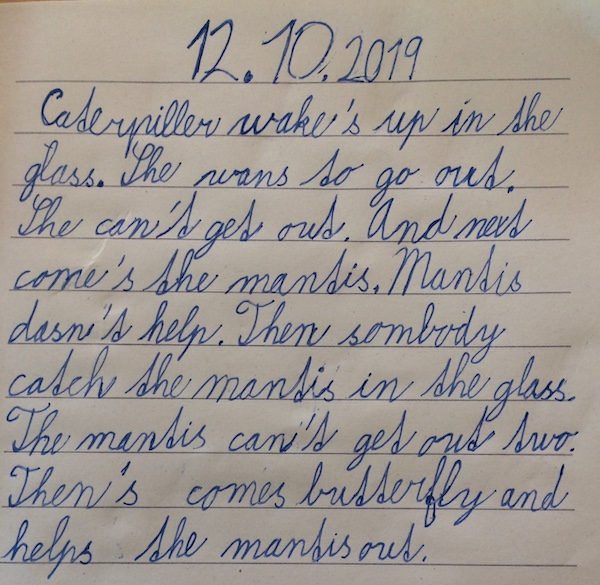 12.10.2019
Caterpiller wake's up in the
glass. She wans to go out.
She can't get out. And next
come's the mantis. Mantis
dasn't help. Then sombody
catch the mantis in the glass.
The mantis can't get out two.
Then's comes butterfly and
helps the mantis out.